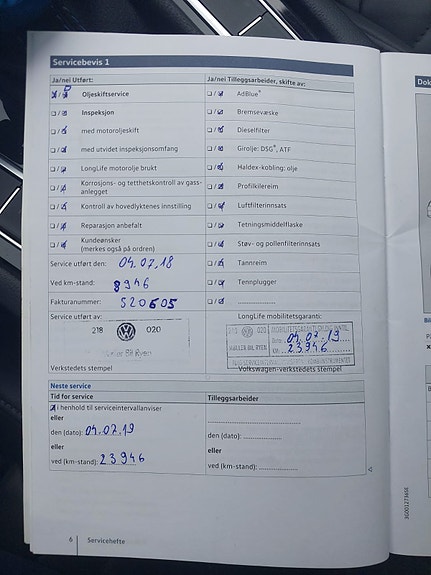 Servicebevis 1
Ja/nei Utført:
Ja/nei Tilleggsarbeider, skifte av:
Oljeskiftservice
AdBlue®
Inspeksjon
Bremsevæske
med motoroljeskift
Dieselfilter
med utvidet inspeksjonsomfang
Girolje: DSG®, ATF
LongLife motorolje brukt
Haldex-kobling: olje
Korrosjons- og tetthetskontroll av gass-
anlegget
Profilkilereim
Kontroll av hovedlyktenes innstilling
Luftfilterinnsats
Reparasjon anbefalt
Tetningsmiddelflaske
Kundeønsker
(merkes også på ordren)
Støv- og pollenfilterinnsats
Service utført den: 04.07.18
Tannreim
Ved km-stand: 8946
Tennplugger
Fakturanummer: 520605
Service utført av:
LongLife mobilitetsgaranti:
218 020
Møller Bil Ryen
218 020
MØLLER BIL RYEN
04.07.19
23946
Verkstedets stempel
Volkswagen-verkstedets stempel
Neste service
Tid for service
Tilleggsarbeider
I henhold til serviceintervallanviser
eller
den (dato): 04.07.19
den (dato):
eller
ved (km-stand): 23946
ved (km-stand):
6 Servicehefte
3G0012734SE